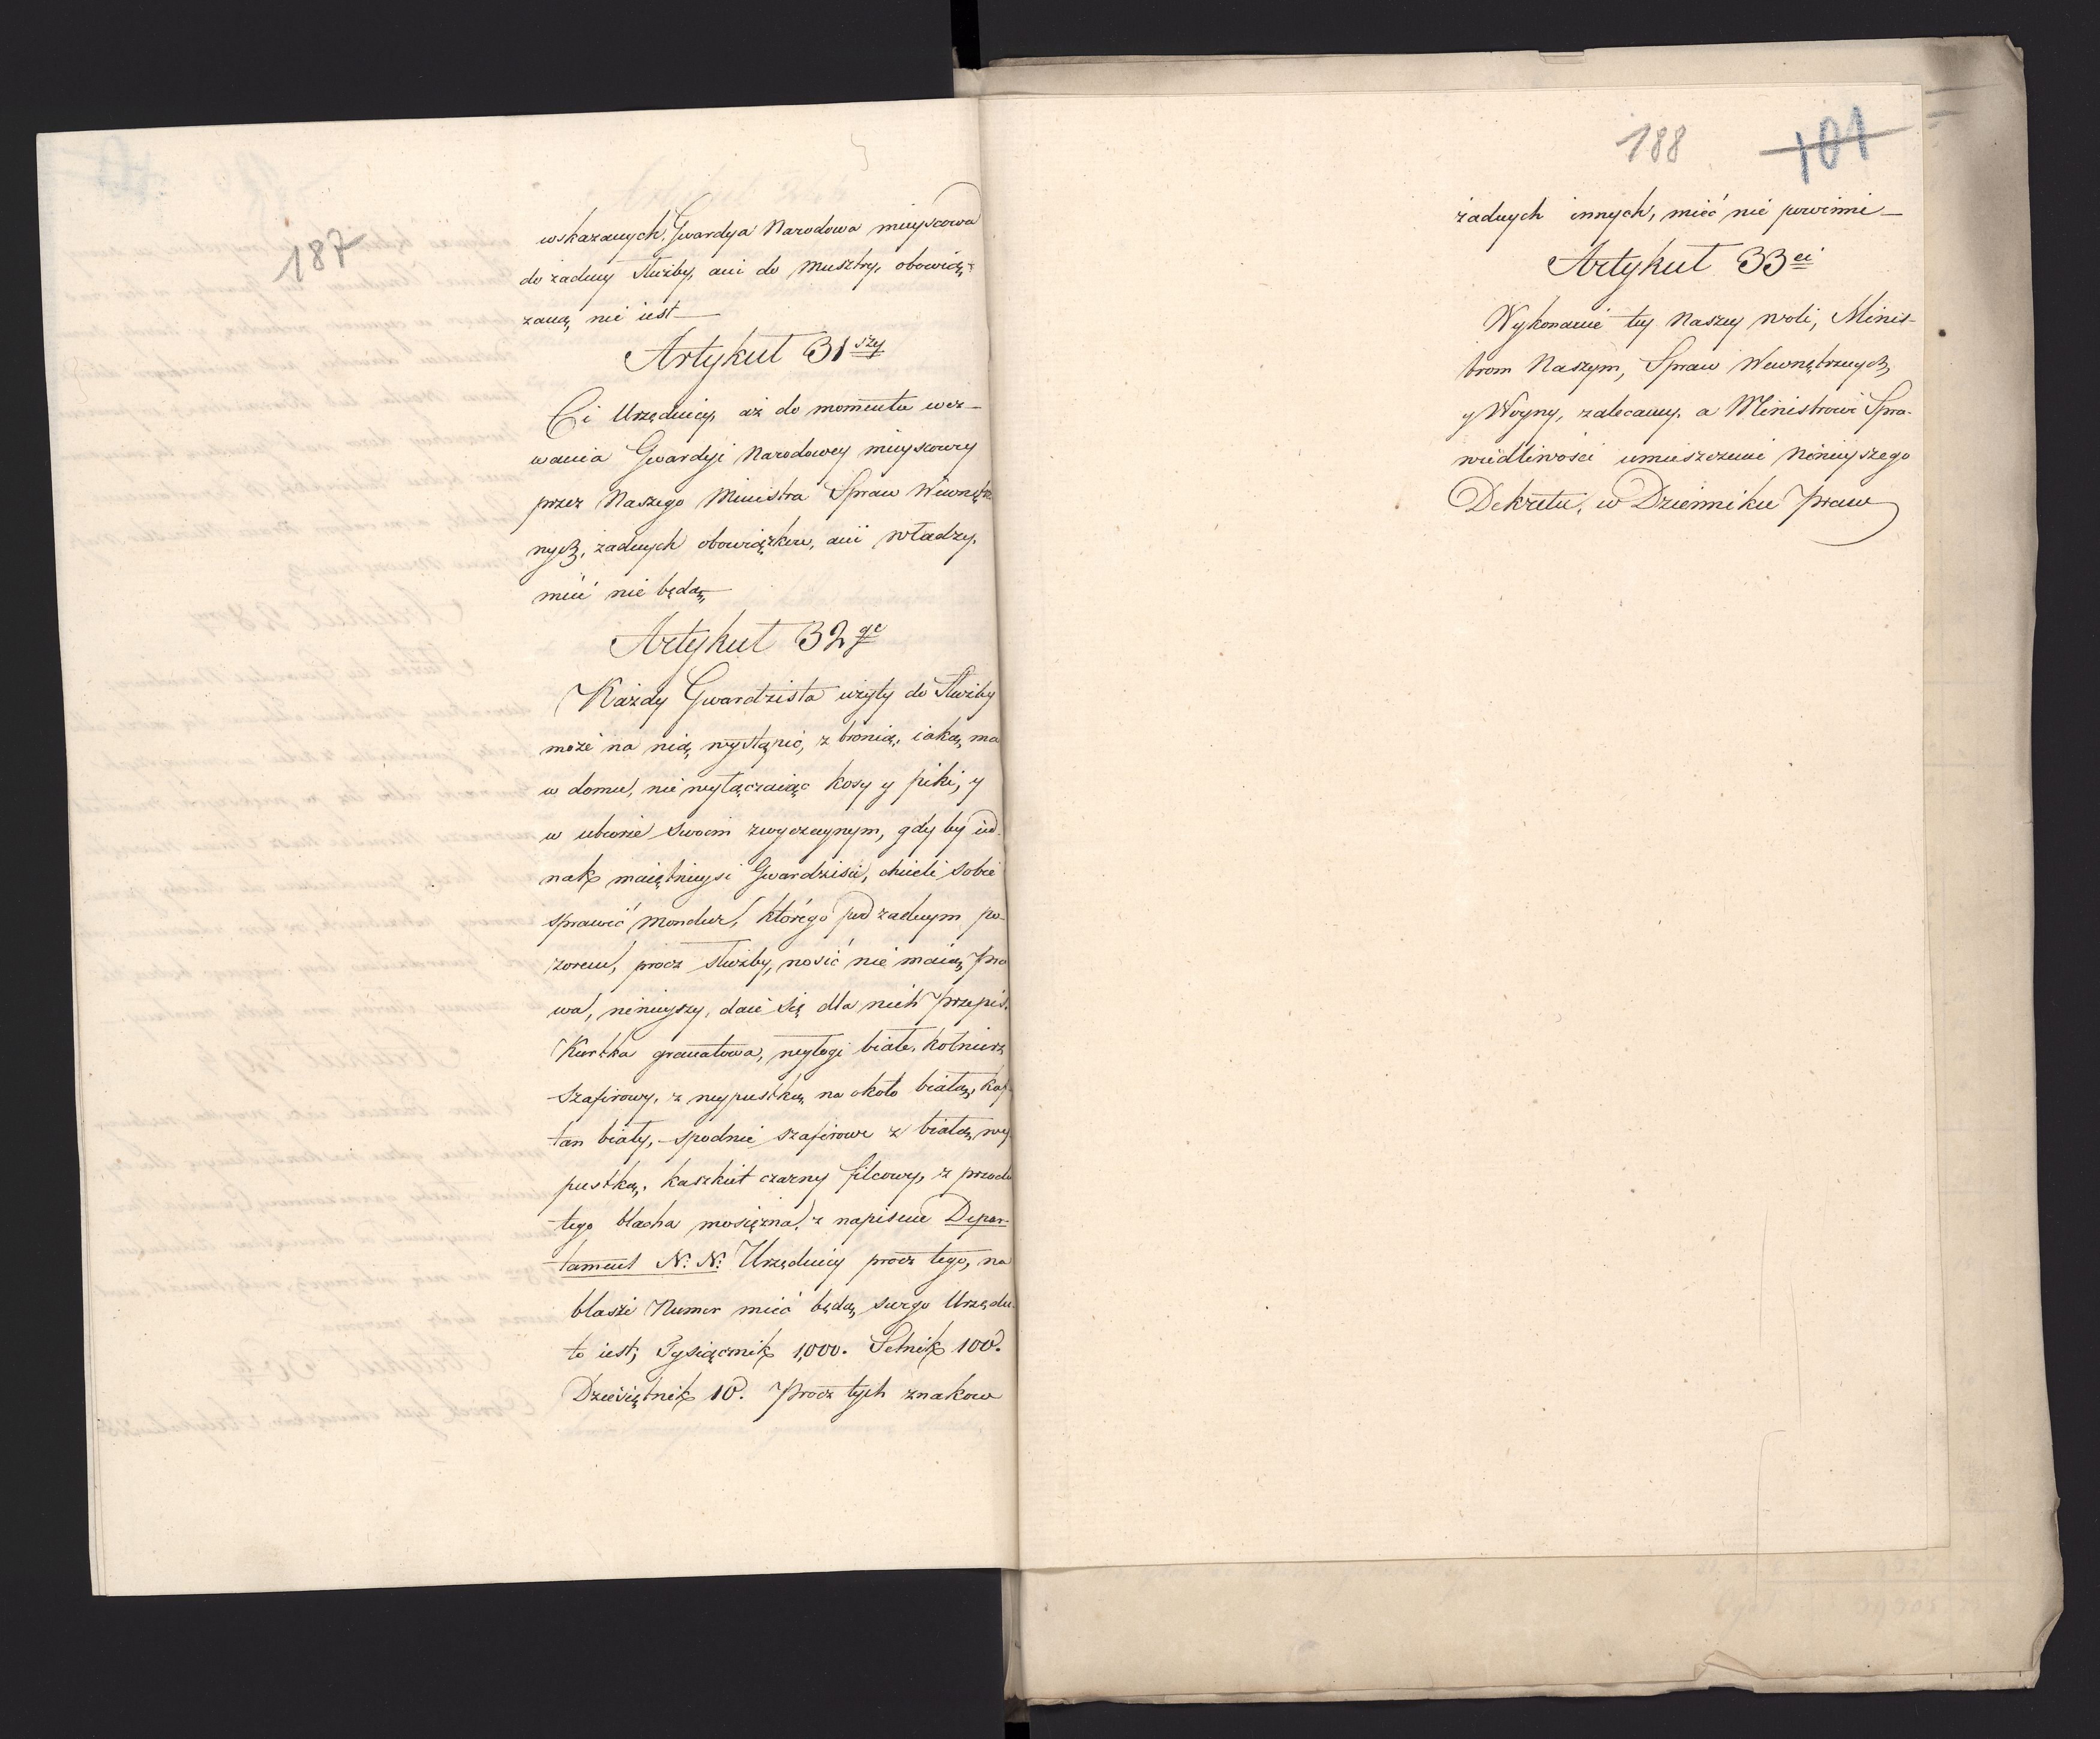 187
wskazanych, Gwardya Narodowa mieyscowa
do żadney służby, ani do musztry, obowią-
zaną nie iest —
Artykuł 31szy
Ci Urzędnicy, aż do momentu wez-
wania Gwardyi Narodowey mieyscowey
przez Naszego Ministra Spraw Wewnętrz
nych, żadnych obowiązków, ani władzy,
mieć nie będą —
Artykuł 32gi
Każdy Gwardzista użyty do służby
może na nią wystąpić, z bronią, iaką ma
w domu, nie wyłączaiąc kosy y piki, y
w ubiorze swoim zwyczaynym, gdyby ied-
nak maiętnieysi Gwardziści, chcieli sobie
sprawić mondur, którego pod żadnym po-
zorem, prócz służby, nosić nie maią pra
wa, ninieyszy, daie się dla nich przepis.
Kurtka granatowa, wyłogi białe, kołnierz
szafirowy, z wypustką na około białą, kaf-
tan biały, spodnie szafirowe z białą wy-
pustką, kaszkiet czarny filcowy, z przodu
tego blacha mosiężna, z napisem Depar-
tament N: N: Urzędnicy prócz tego, na
blasze Numer mieć będą swego Urzędu
to iest, Tysiącznik 1,000. Setnik 100.
Dziesiętnik 10. Prócz tych znaków
188 101
żadnych innych, mieć nie powinni —
Artykuł 33ci
Wykonanie tey Naszey woli, Minis-
trom Naszym, Spraw Wewnętrznych,
y Woyny, zalecamy, a Ministrowi Spra-
wiedliwości umieszczenie ninieyszego
Dekretu, w Dzienniku praw